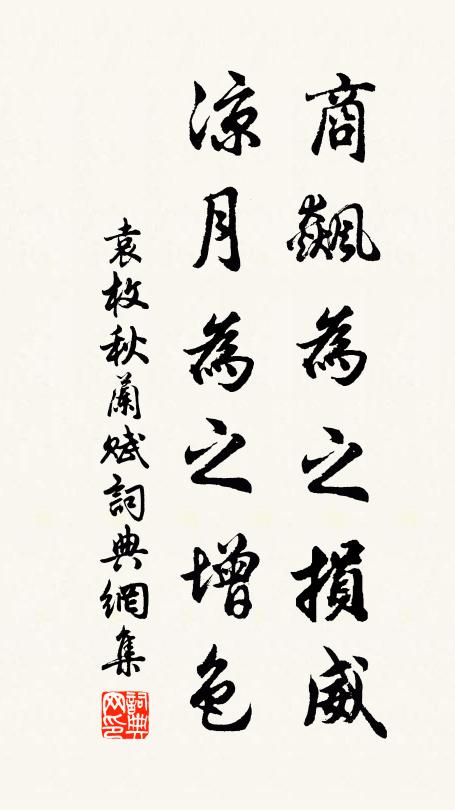 商飆為之損威
涼月為之增色
袁枚秋蘭賦詞典網集
詞典
网印